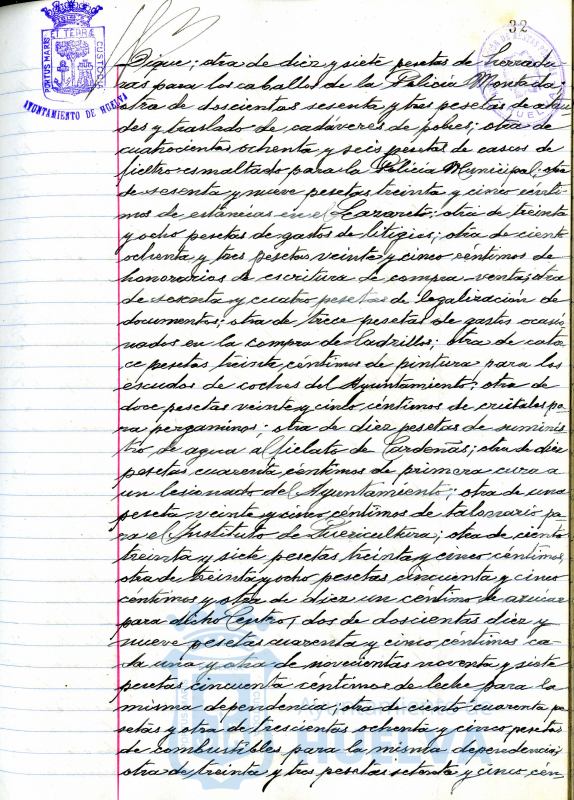 32
PORTUS MARIS ET TERRÆ CUSTODIA
AYUNTAMIENTO DE HUELVA
HUELVA
Dique; otra de diez y siete pesetas de herradu-
ras para los caballos de la Policía Montada,
otra de doscientas sesenta y tres pesetas de ataú-
des y traslado de cadáveres de pobres; otra de
cuatrocientas ochenta y seis pesetas de cascos de
fieltro esmaltado para la Policía Municipal; otra
de sesenta y nueve pesetas treinta y cinco cénti-
mos de estancias en el Lazareto; otra de treinta
y ocho pesetas de gastos de litigios; otra de ciento
ochenta y tres pesetas veinte y cinco céntimos de
honorarios de escritura de compra-venta; otra
de sesenta y cuatro pesetas de legalización de
documentos; otra de trece pesetas de gastos ocasio-
nados en la compra de ladrillos; otra de cator-
ce pesetas treinta céntimos de pintura para los
escudos de coches del Ayuntamiento; otra de
doce pesetas veinte y cinco céntimos de cristales pa-
ra pergaminos; otra de diez pesetas de suminis-
tro de agua al fielato de Cardeñas; otra de diez
pesetas cuarenta céntimos de primera cura a
un lesionado del Ayuntamiento; otra de una
peseta veinte y cinco céntimos de talonario pa-
ra el Instituto de Puericultura; otra de ciento
treinta y siete pesetas treinta y cinco céntimos,
otra de treinta y ocho pesetas cincuenta y cinco
céntimos y otra de diez un céntimo de azúcar
para dicho Centro; dos de doscientas diez y
nueve pesetas cuarenta y cinco céntimos ca-
da una y otra de novecientas noventa y siete
pesetas cincuenta céntimos de leche para la
misma dependencia; otra de ciento cuarenta pe-
setas y otra de trescientas ochenta y cinco pesetas
de combustibles para la misma dependencia;
otra de treinta y tres pesetas setenta y cinco cén-
Ayuntamiento de
HUELVA